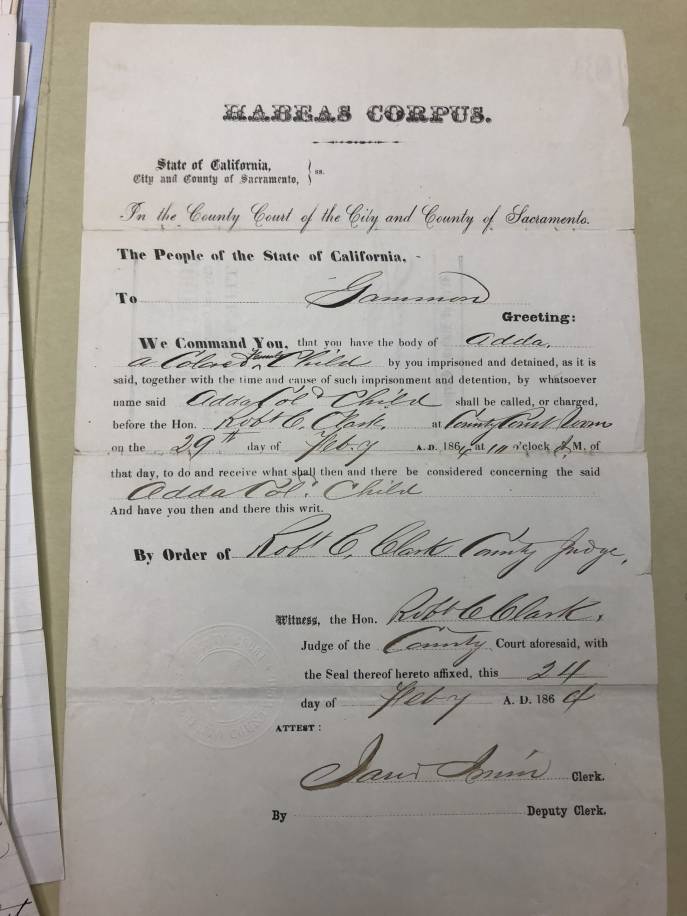 HABEAS CORPUS.
State of California,
City and County of Sacramento, } ss.
In the County Court of the City and County of Sacramento.
The People of the State of California,
To Gammon
Greeting:
We Command You, that you have the body of Adda,
a Colored Female Child by you imprisoned and detained, as it is
said, together with the time and cause of such imprisonment and detention, by whatsoever
name said Adda Col'd Child shall be called, or charged,
before the Hon. Robt C. Clark, at County Court Room
on the 29th day of Feby A. D. 1864, at 10 o'clock A M. of
that day, to do and receive what shall then and there be considered concerning the said
Adda Col. Child
And have you then and there this writ.
By Order of Robt C. Clark County Judge,
Witness, the Hon. Robt C Clark,
Judge of the County Court aforesaid, with
the Seal thereof hereto affixed, this 24
day of Feby A. D. 1864
ATTEST:
Clerk.
By Deputy Clerk.